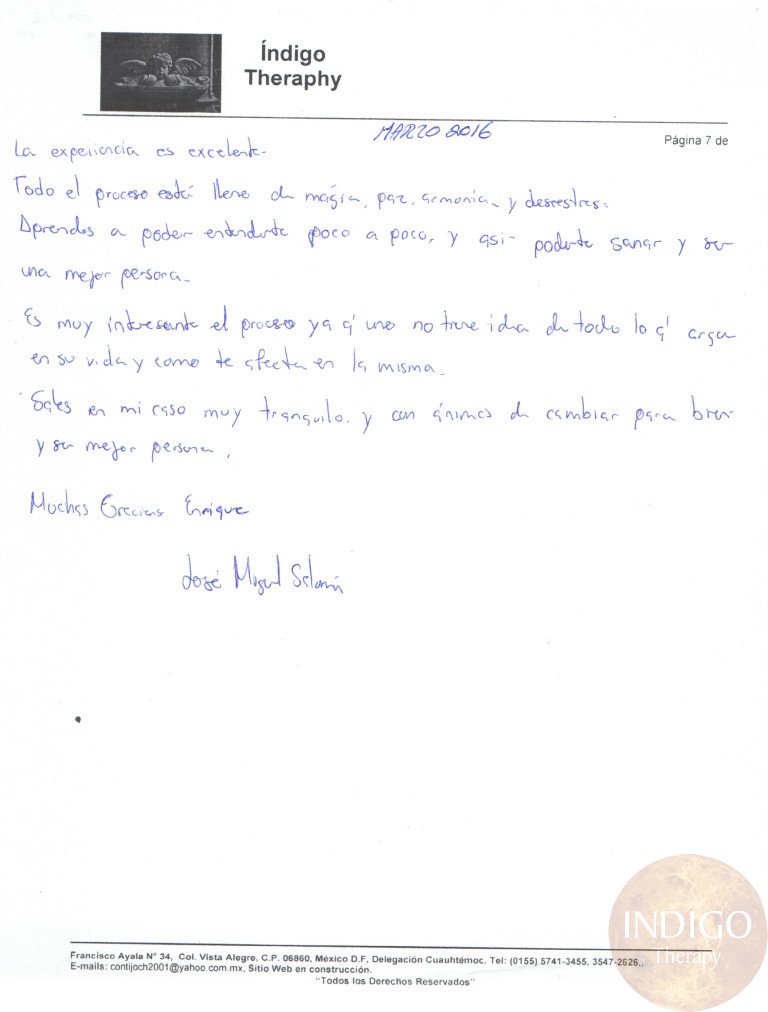 Índigo
Theraphy
MARZO 2016
Página 7 de
La experiencia es excelente.
Todo el proceso está lleno de mágia, paz, armonia, y desestres.
Aprendes a poder entenderte poco a poco, y asi poderte sanar y ser
una mejor persona.
Es muy interesante el proceso ya q' uno no tiene idea de todo lo q' carga
en su vida y como te afecta en la misma.
Sales en mi caso muy tranquilo, y con ánimos de cambiar para bien
y ser mejor persona.
Muchas Gracias Enrique
José Miguel
INDIGO
Therapy
Francisco Ayala N° 34, Col. Vista Alegre, C.P. 06860, México D.F, Delegación Cuauhtémoc. Tel: (0155) 5741-3455, 3547-2626,.
E-mails: contijoch2001@yahoo.com.mx, Sitio Web en construcción.
"Todos los Derechos Reservados"